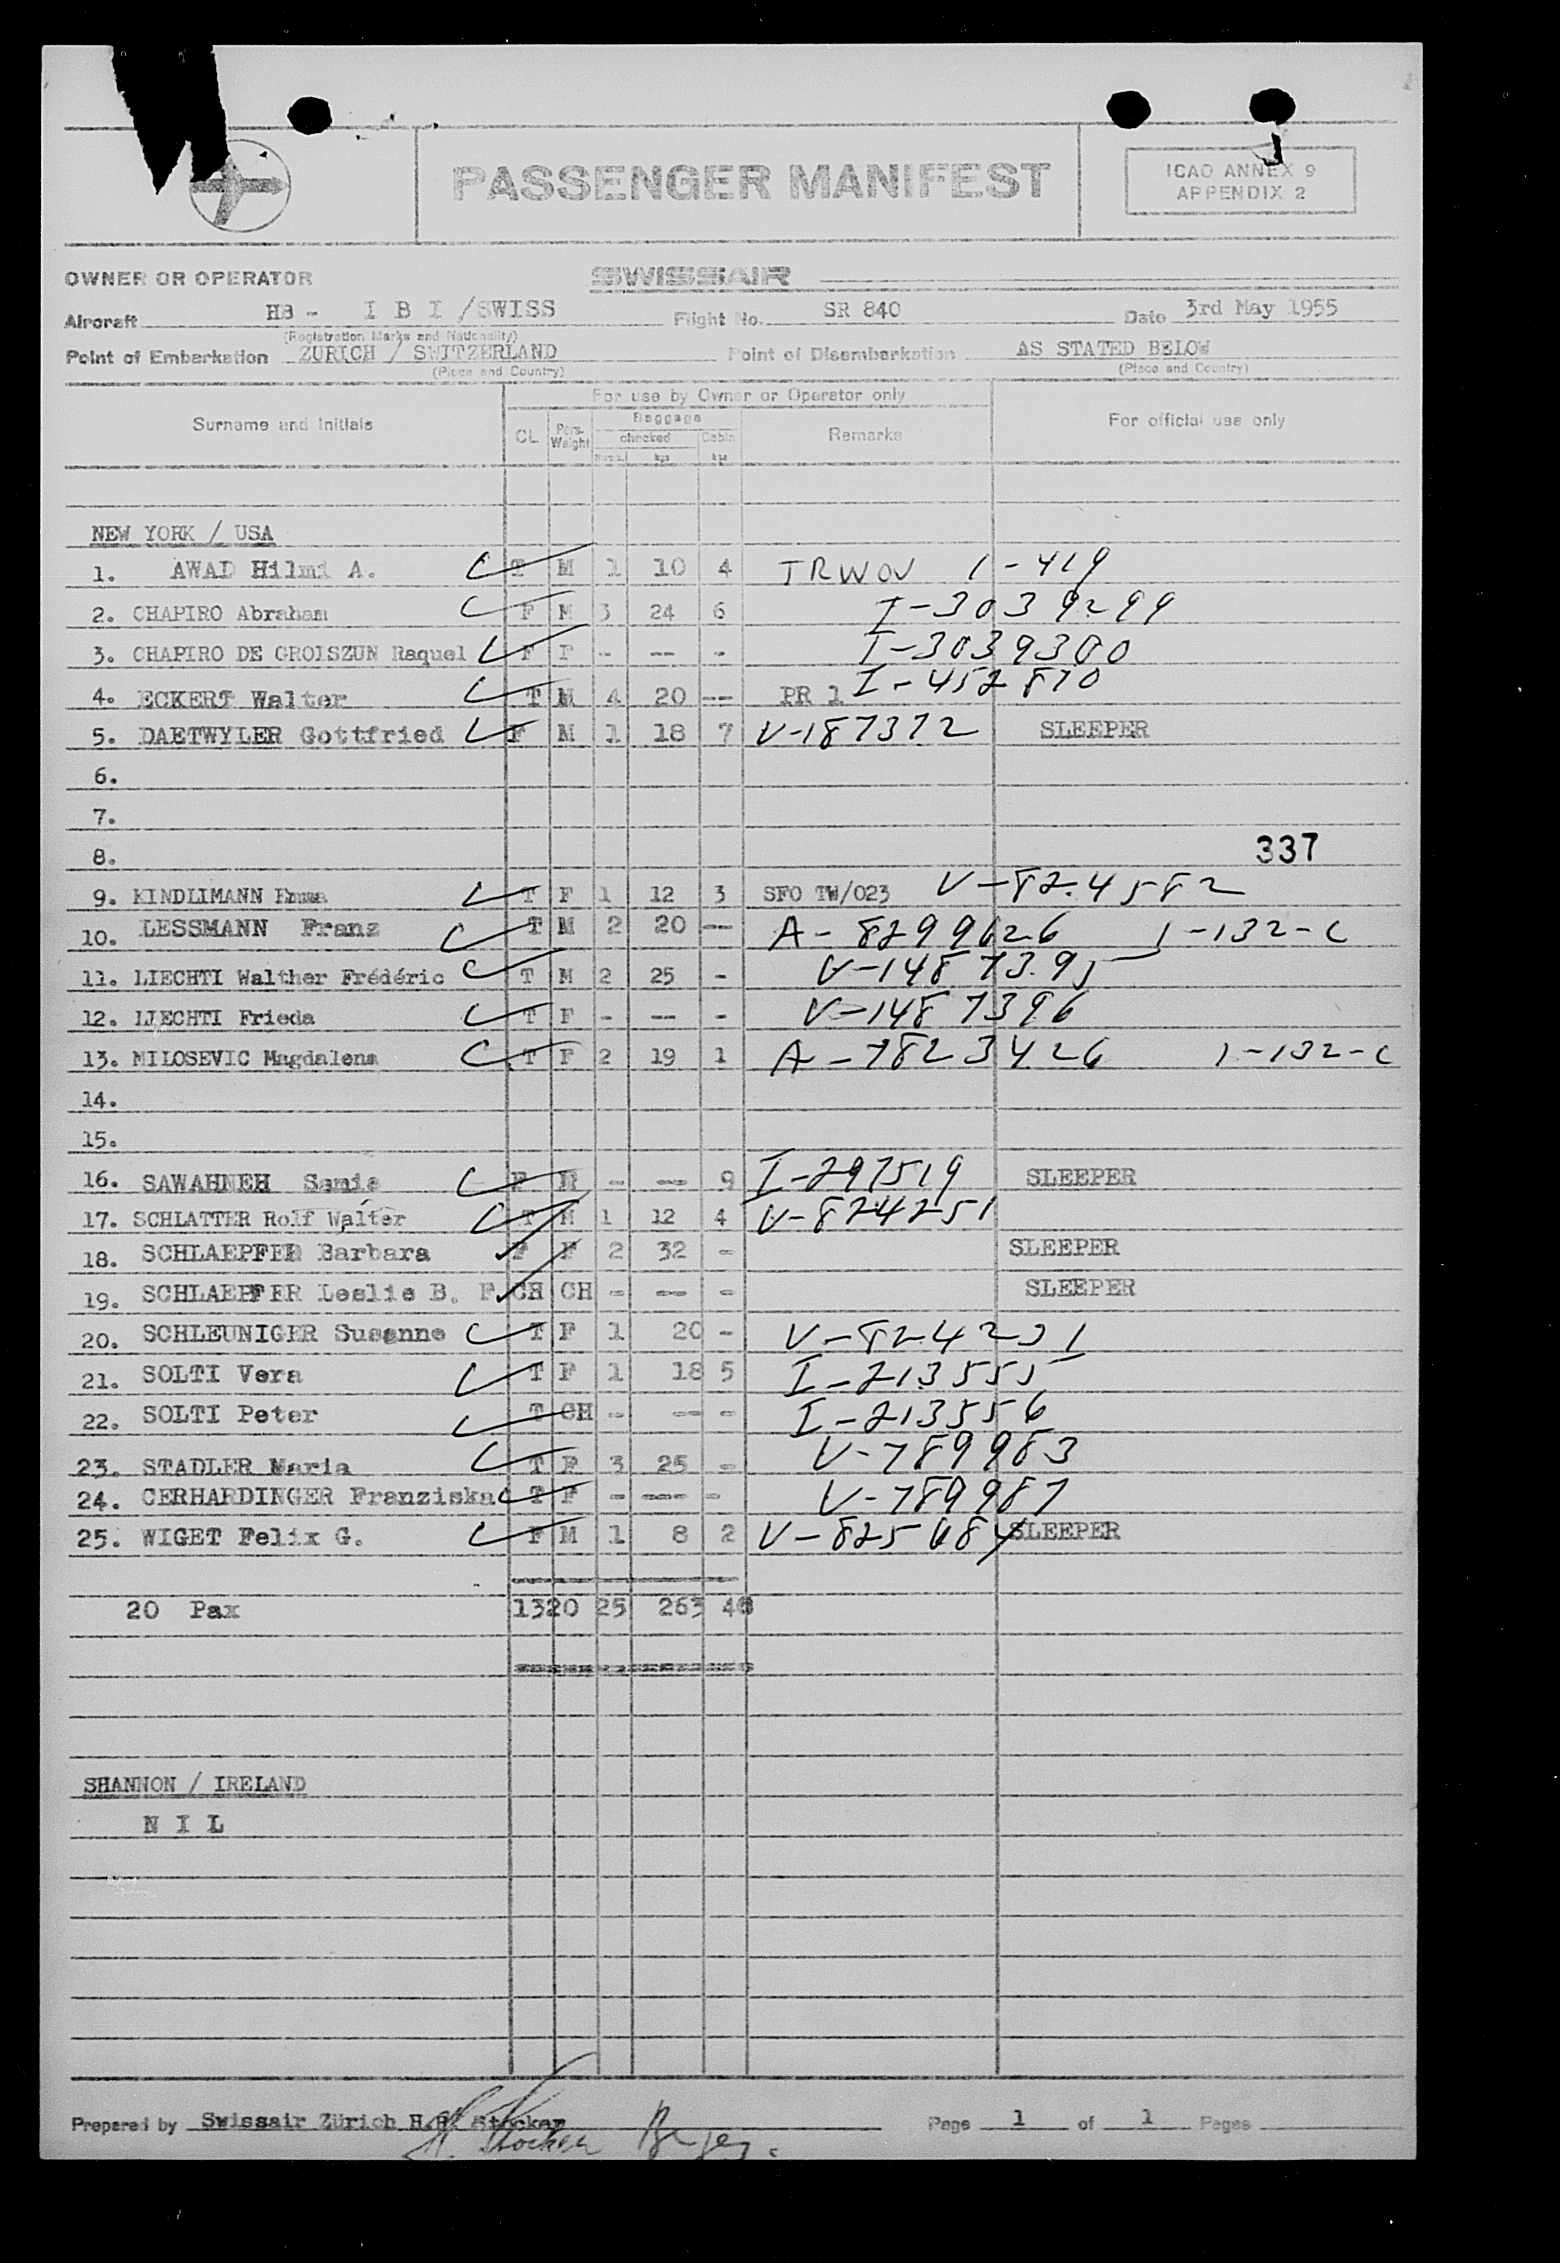 PASSENGER MANIFEST
ICAO ANNEX 9
APPENDIX 2
OWNER OR OPERATOR SWISSAIR
Aircraft HB - I B I /SWISS Flight No. SR 840 Date 3rd May 1955
(Registration Marks and Nationality)
Point of Embarkation ZURICH / SWITZERLAND Point of Disembarkation AS STATED BELOW
(Place and Country) (Place and Country)
For use by Owner or Operator only
Surname and Initials CL. Pers. Weight Baggage checked Cabin Remarks For official use only
kgs kgs
NEW YORK / USA
1. AWAD Hilmi A. T M 1 10 4 TRWOV 1-419
2. CHAPIRO Abraham F M 3 24 6 I-3039299
3. CHAPIRO DE GROISZUN Raquel F F - -- - I-3039300
4. ECKERT Walter T M 4 20 -- PR 1 I-452870
5. DAETWYLER Gottfried F M 1 18 7 V-187372 SLEEPER
6.
7.
8. 337
9. KINDLIMANN Emma T F 1 12 3 SFO TW/023 V-824582
10. LESSMANN Franz T M 2 20 -- A-8299626 1-132-C
11. LIECHTI Walther Frédéric T M 2 25 - V-1487395
12. LIECHTI Frieda T F - -- - V-1487396
13. MILOSEVIC Magdalena T F 2 19 1 A-7823426 1-132-C
14.
15.
16. SAWAHNEH Samie F M - -- 9 I-297519 SLEEPER
17. SCHLATTER Rolf Walter T M 1 12 4 V-824251
18. SCHLAEPFER Barbara F F 2 32 - SLEEPER
19. SCHLAEPFER Leslie B. F. CH CH - -- - SLEEPER
20. SCHLEUNIGER Susanne T F 1 20 - V-824231
21. SOLTI Vera T F 1 18 5 I-213555
22. SOLTI Peter T CH - -- - I-213556
23. STADLER Maria T F 3 25 - V-789983
24. GERHARDINGER Franziska T F - --- - V-789987
25. WIGET Felix G. F M 1 8 2 V-825684 SLEEPER
20 Pax 1320 25 263
SHANNON / IRELAND
N I L
Prepared by Swissair Zürich H.R. Stocker Page 1 of 1 Pages
H. Stocker